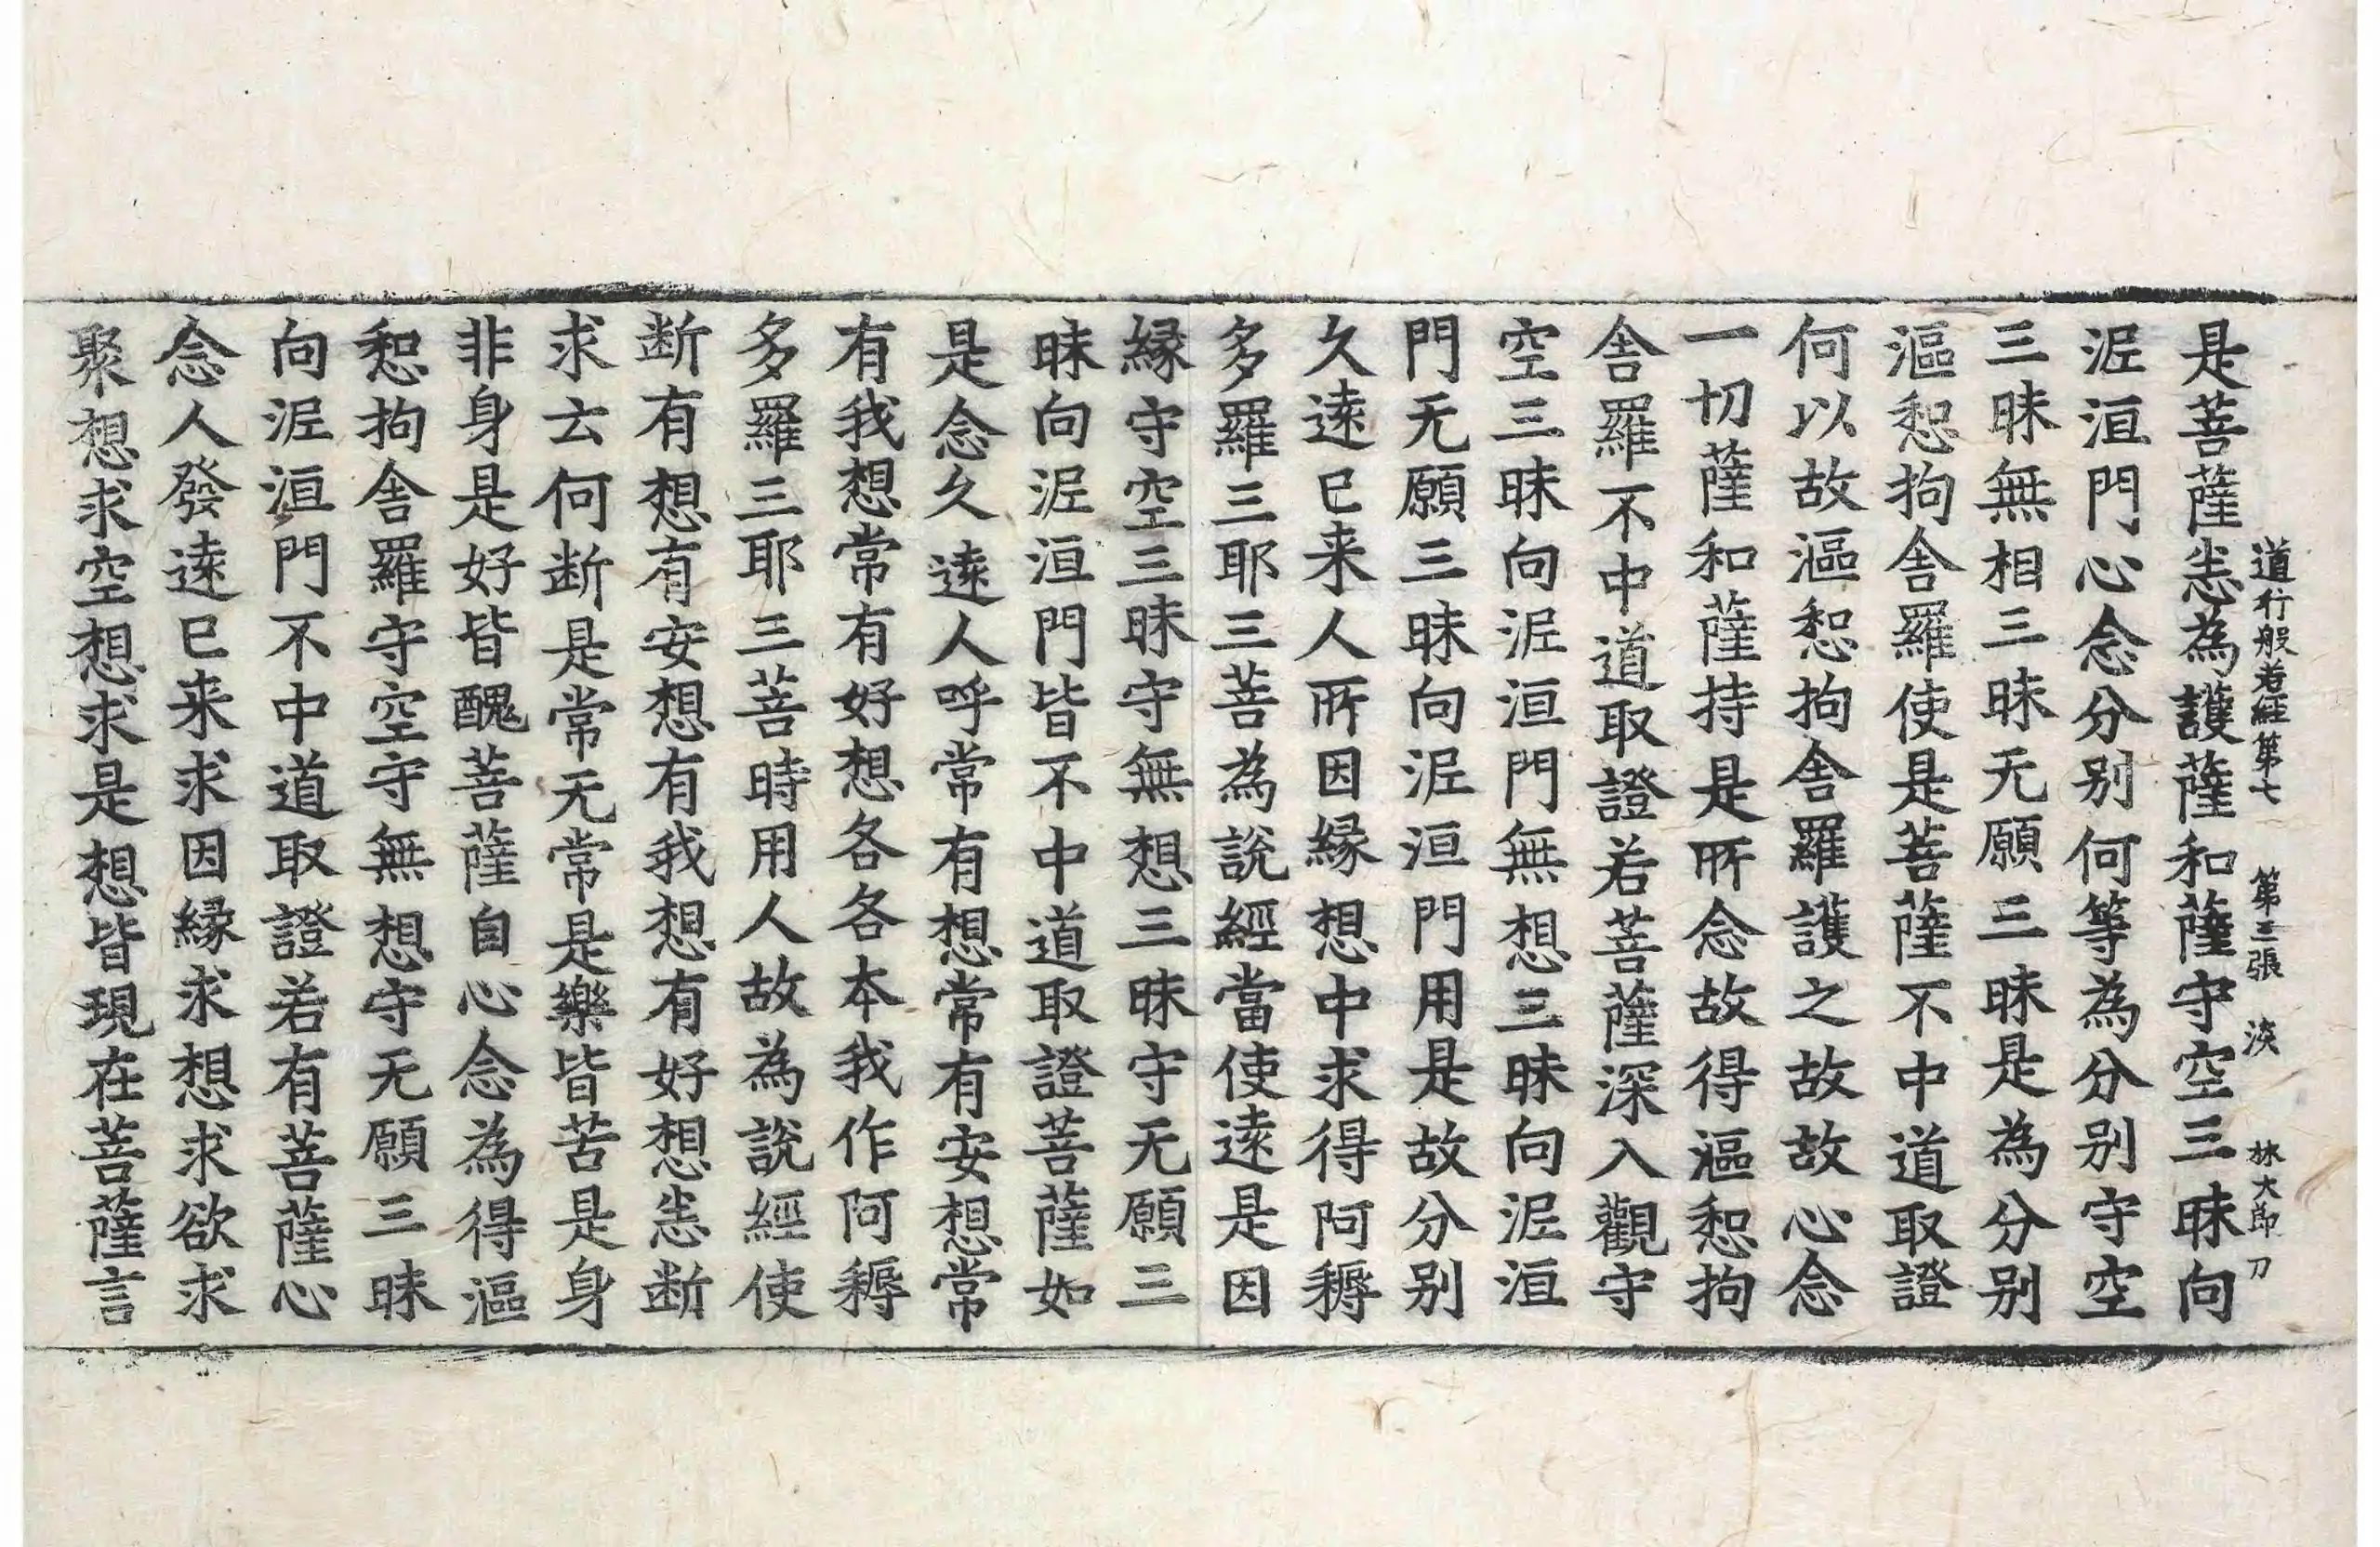 道行般若經第七 第三張 淡 林大節刀
是菩薩恙為護薩和薩守空三昧向
泥洹門心念分别何等為分别守空
三昧無相三昧无願三昧是為分别
漚惒拘舍羅使是菩薩不中道取證
何以故漚惒拘舍羅護之故故心念
一切薩和薩持是所念故得漚惒拘
舍羅不中道取證若菩薩深入觀守
空三昧向泥洹門無想三昧向泥洹
門无願三昧向泥洹門用是故分别
久逺已来人所因縁想中求得阿耨
多羅三耶三菩為說經當使逺是因
縁守空三昧守無想三昧守无願三
昧向泥洹門皆不中道取證菩薩如
是念久逺人呼常有想常有安想常
有我想常有好想各各本我作阿耨
多羅三耶三菩時用人故為說經使
断有想有安想有我想有好想恙断
求云何断是常无常是樂皆苦是身
非身是好皆醜菩薩自心念為得漚
惒拘舍羅守空守無想守无願三昧
向泥洹門不中道取證若有菩薩心
念人發逺已来求因縁求想求欲求
聚想求空想求是想皆現在菩薩言